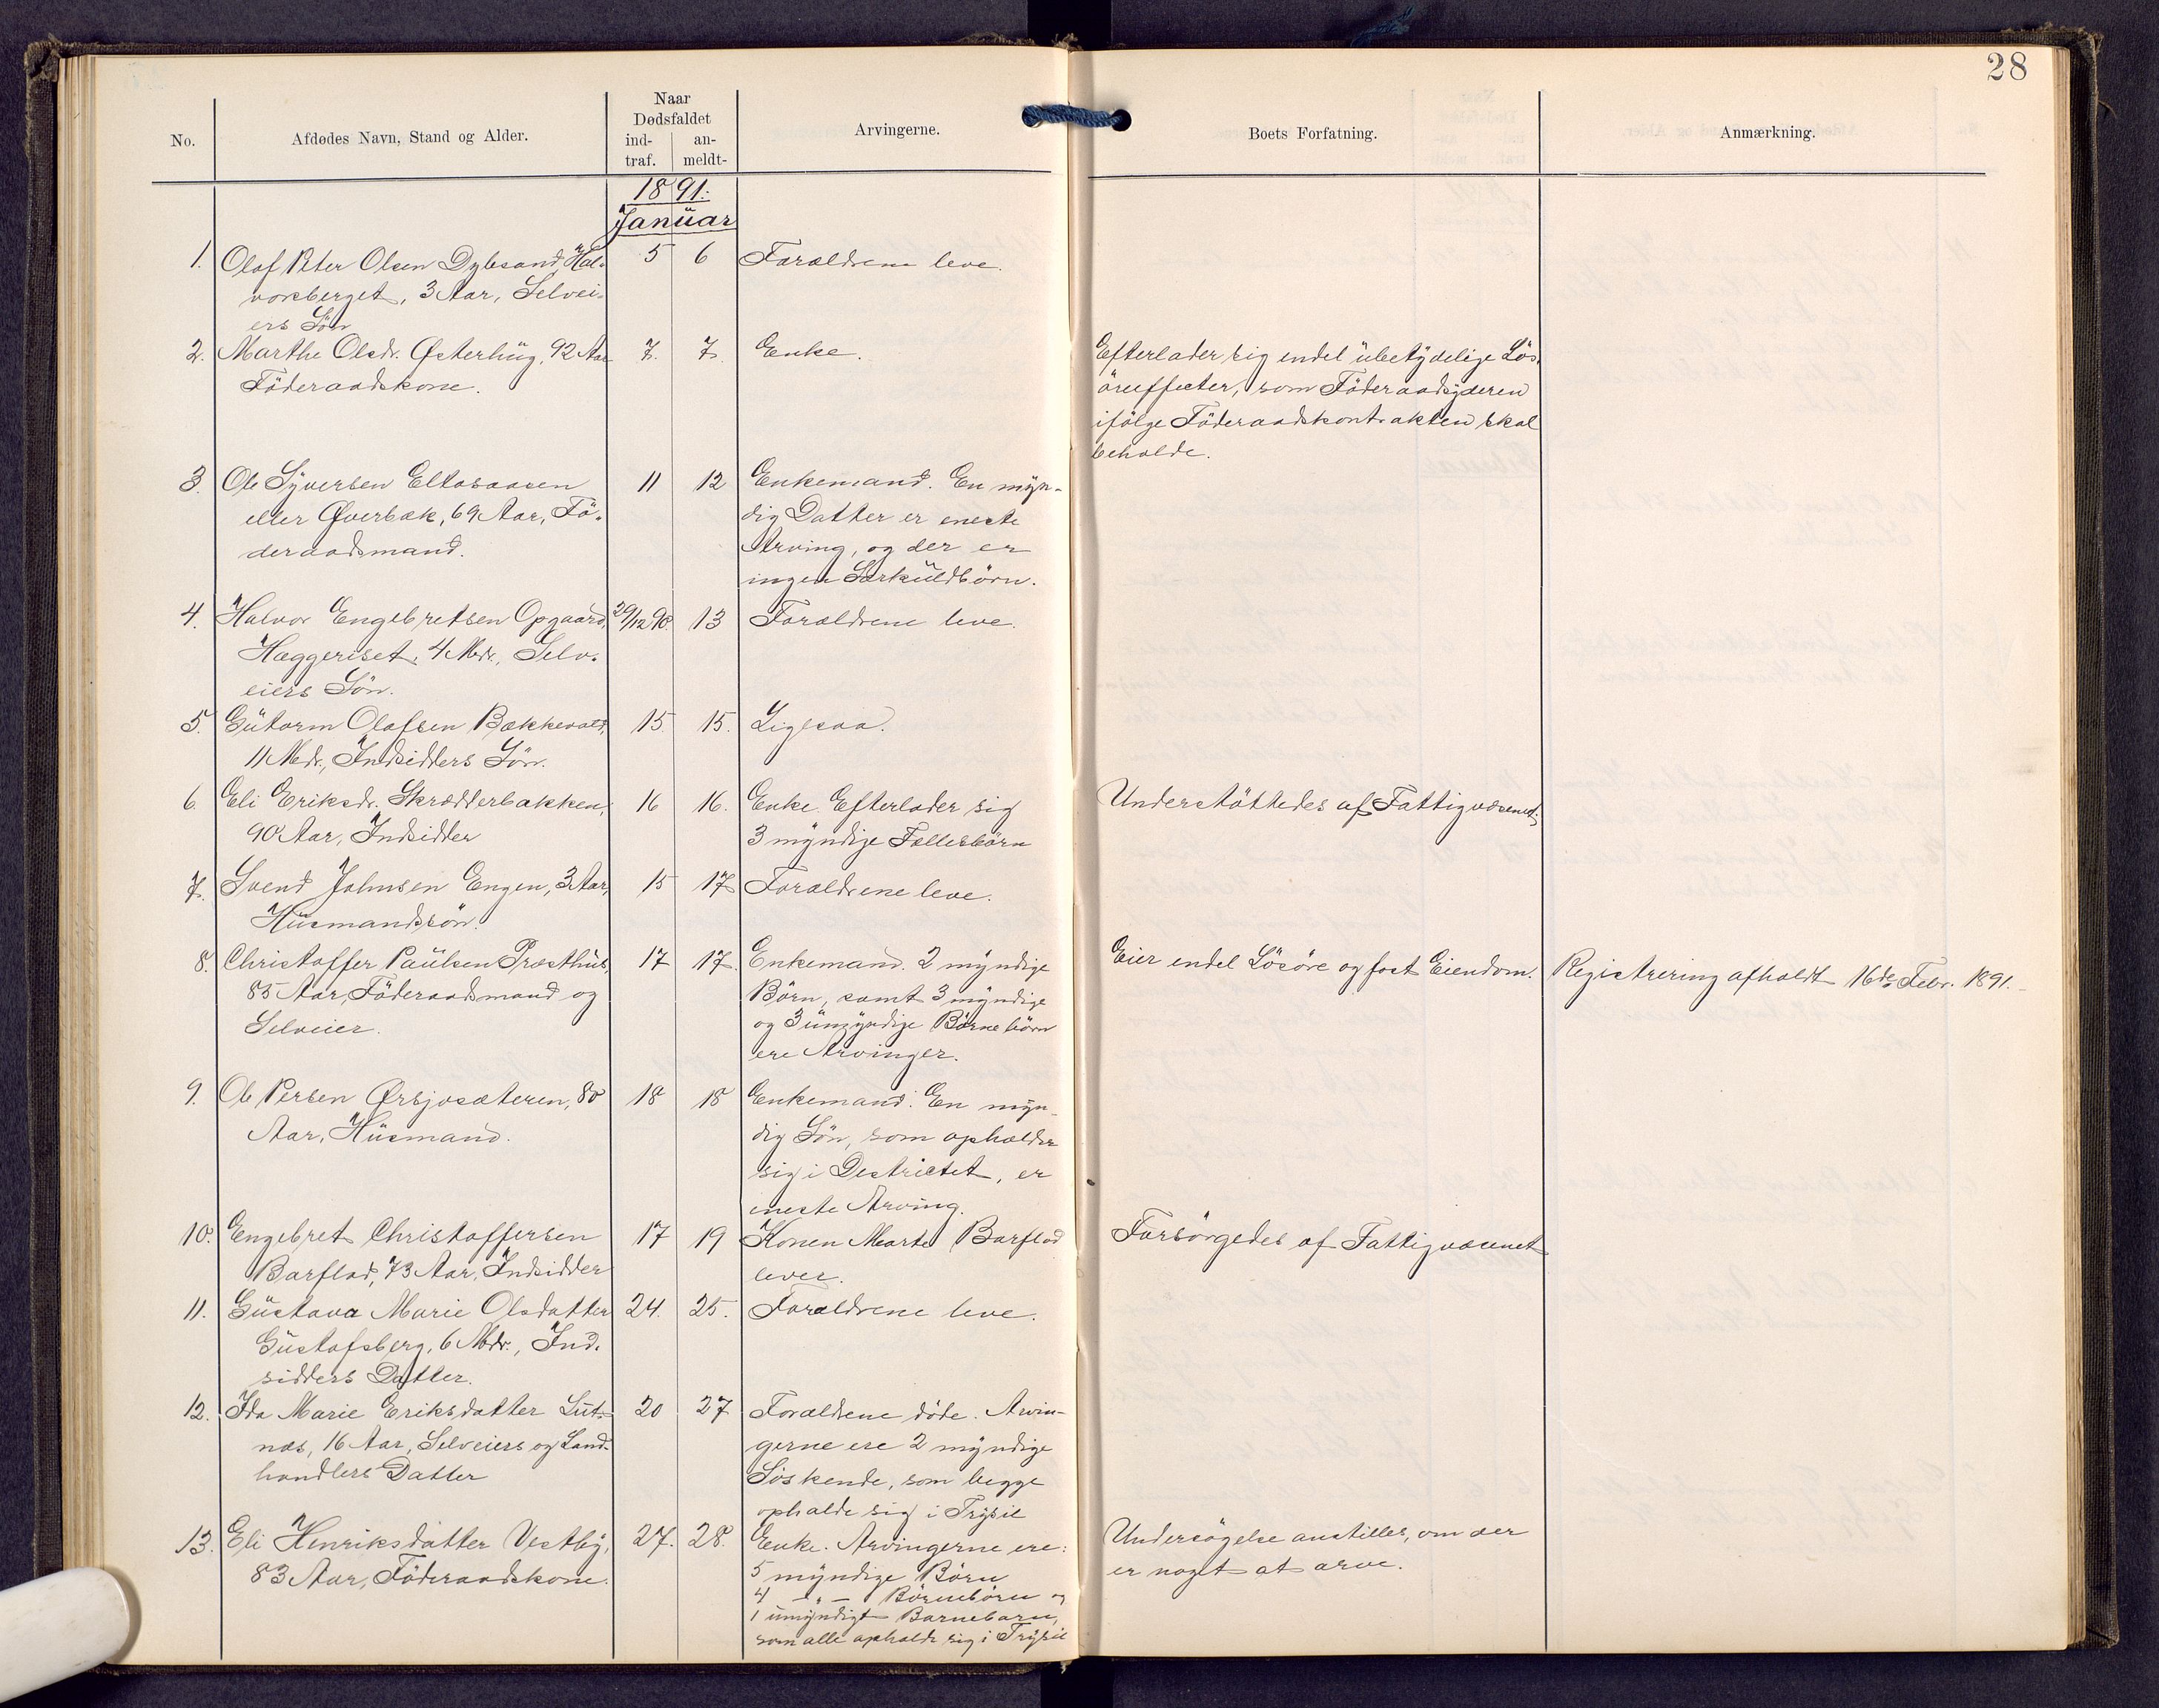 28
No.
Afdødes Navn, Stand og Alder.
Naar
Dødsfaldet
ind-
traf.
an-
meldt-
Arvingerne.
Boets Forfatning.
Anmærkning.
1891.
Januar
1. Olaf Peter Olsen Dybsand, Hal-
vorsberget, 3 Aar, Selvei-
ers Søn
5 6 Forældrene leve.
2. Marthe Olsdr. Østerhüg, 92 Aar
Föderaadskone.
7. 7. Enke.
Efterlader sig endel ubetydelige Lös-
öreeffecter, som Föderaadsyderen
ifölge Föderaadskontrakten skal
beholde.
3. Ole Syversen Eltaasaasen
eller Øverbak, 69 Aar, Fö-
deraadsmand.
11 12 Enkemand. En myn-
dig Datter er eneste
Arving, og der er
ingen Særküldbörn.
4. Halvor Engebretsen Opgaard,
Hæggeriset, 4 Mdr., Selv-
eiers Sön.
29/12 90. 13 Forældrene leve.
5. Gütorm Olafsen Bækkevold,
11 Mdr., Indsidders Sön.
15. 15. Ligesaa.
6. Eli Eriksdr. Skrædderbakken,
90 Aar, Indsidder
16 16. Enke Efterlader sig
3 myndige Fællesbörn
Understöttedes af Fattigvæsenet.
7. Svend Johnsen Engen, 3 Aar,
Hüsmandssön.
15 17 Forældrene leve.
8. Christoffer Paülsen Præsthüs,
85 Aar, Föderaadsmand og
Selveier.
17 17. Enkemand. 2 myndige
Börn, samt 3 myndige
og 3 ümyndige Börnebörn
ere Arvinger.
Eier endel Lösöre og fast Eiendom.
Registrering afholdt 16de Febr. 1891.
9. Ole Persen Ørsjosæteren, 80
Aar, Hüsmand.
18 18 Enkemand. En myn-
dig Sön, som opholder
sig i Destrictet, er
eneste Arving.
10. Engebret Christoffersen
Barflod, 73 Aar, Indsidder
17 19 Konen Marte Barflod
lever.
Forsörgedes af Fattigvæsenet
11. Güstava Marie Olsdatter
Güstafsberg, 6 Mdr., Ind-
sidders Datter.
24. 25. Forældrene leve.
12. Ida Marie Eriksdatter Lut-
næs, 16 Aar, Selveiers og Land-
handlers Datter
20 27 Forældrene döde. Arvin-
gerne ere 2 myndige
Söskende, som begge
opholde sig i Trysil
13. Eli Henriksdatter Vestby,
83 Aar, Föderaadskone.
27. 28. Enke. Arvingerne ere:
5 myndige Börn
4 -„- Börnebörn og
1 ümyndigt Barnebarn,
som alle opholde sig i Trysil
Undersögelse anstilles, om der
er noget at arve.